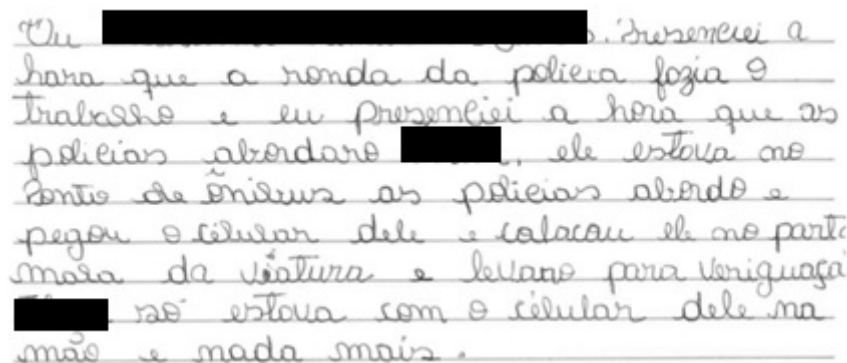 Eu . Presenciei a
hora que a ronda da policia fazia o
trabalho e eu presenciei a hora que as
policias abordaro , ele estava no
Ponto de ônibus as policias abordo e
pegou o célular dele e colacou ele no porta
mala da viatura e levano para veriguaçã
só estava com o célular dele na
mão e nada mais.